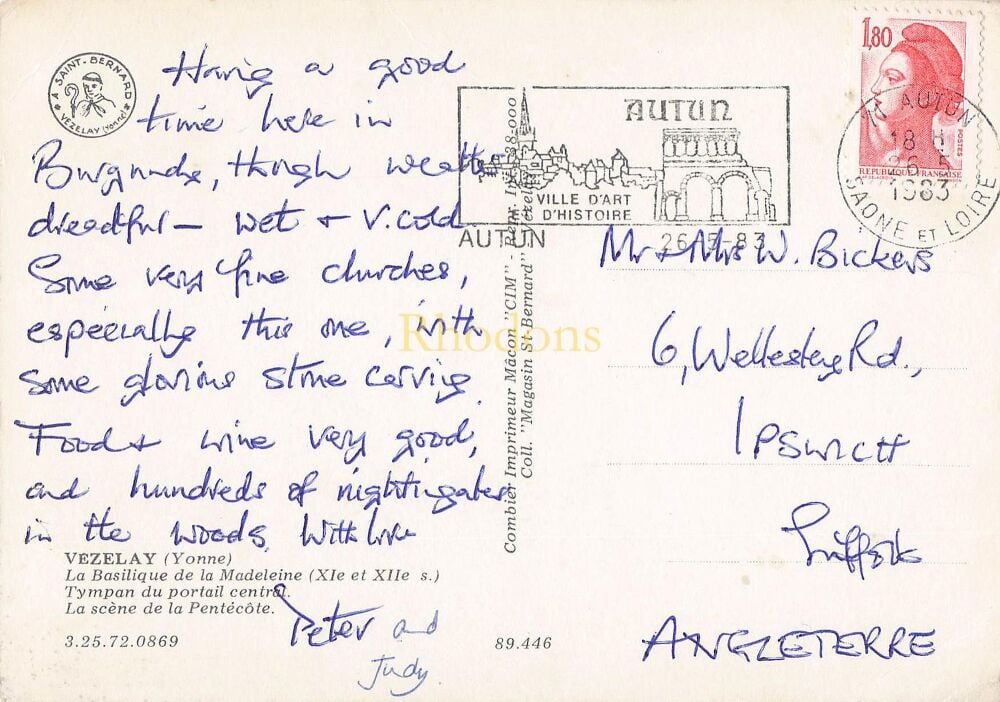 A SAINT-BERNARD
VEZELAY (Yonne)
Having a good
time here in
Burgundy, though weather
dreadful - wet & v. cold
Some very fine churches,
especially this one, with
some glorious stone carving.
Food & wine very good,
and hundreds of nightingales
in the woods. With love
Peter and
Judy.
VEZELAY (Yonne)
La Basilique de la Madeleine (XIe et XIIe s.)
Tympan du portail central.
La scène de la Pentécôte.
3.25.72.0869
89.446
Combier Imprimeur Mâcon "CIM" -
Coll. "Magasin St-Bernard" Vezelay
Rhodons
AUTUN
VILLE D'ART
D'HISTOIRE
AUTUN
26-5-83
1,80
POSTES
REPUBLIQUE FRANÇAISE
71 AUTUN
18 H
26-5
1983
SAONE ET LOIRE
Mr & Mrs W. Bickers
6, Wellesley Rd.,
IPSWICH
Suffolk
ANGLETERRE